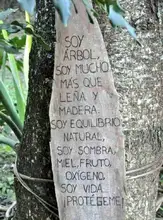 SOY
ÁRBOL,
SOY MUCHO
MÁS QUE
LEÑA Y
MADERA.
SOY EQUILIBRIO
NATURAL,
SOY SOMBRA,
MIEL, FRUTO,
OXÍGENO.
SOY VIDA.
¡PROTÉGEME!